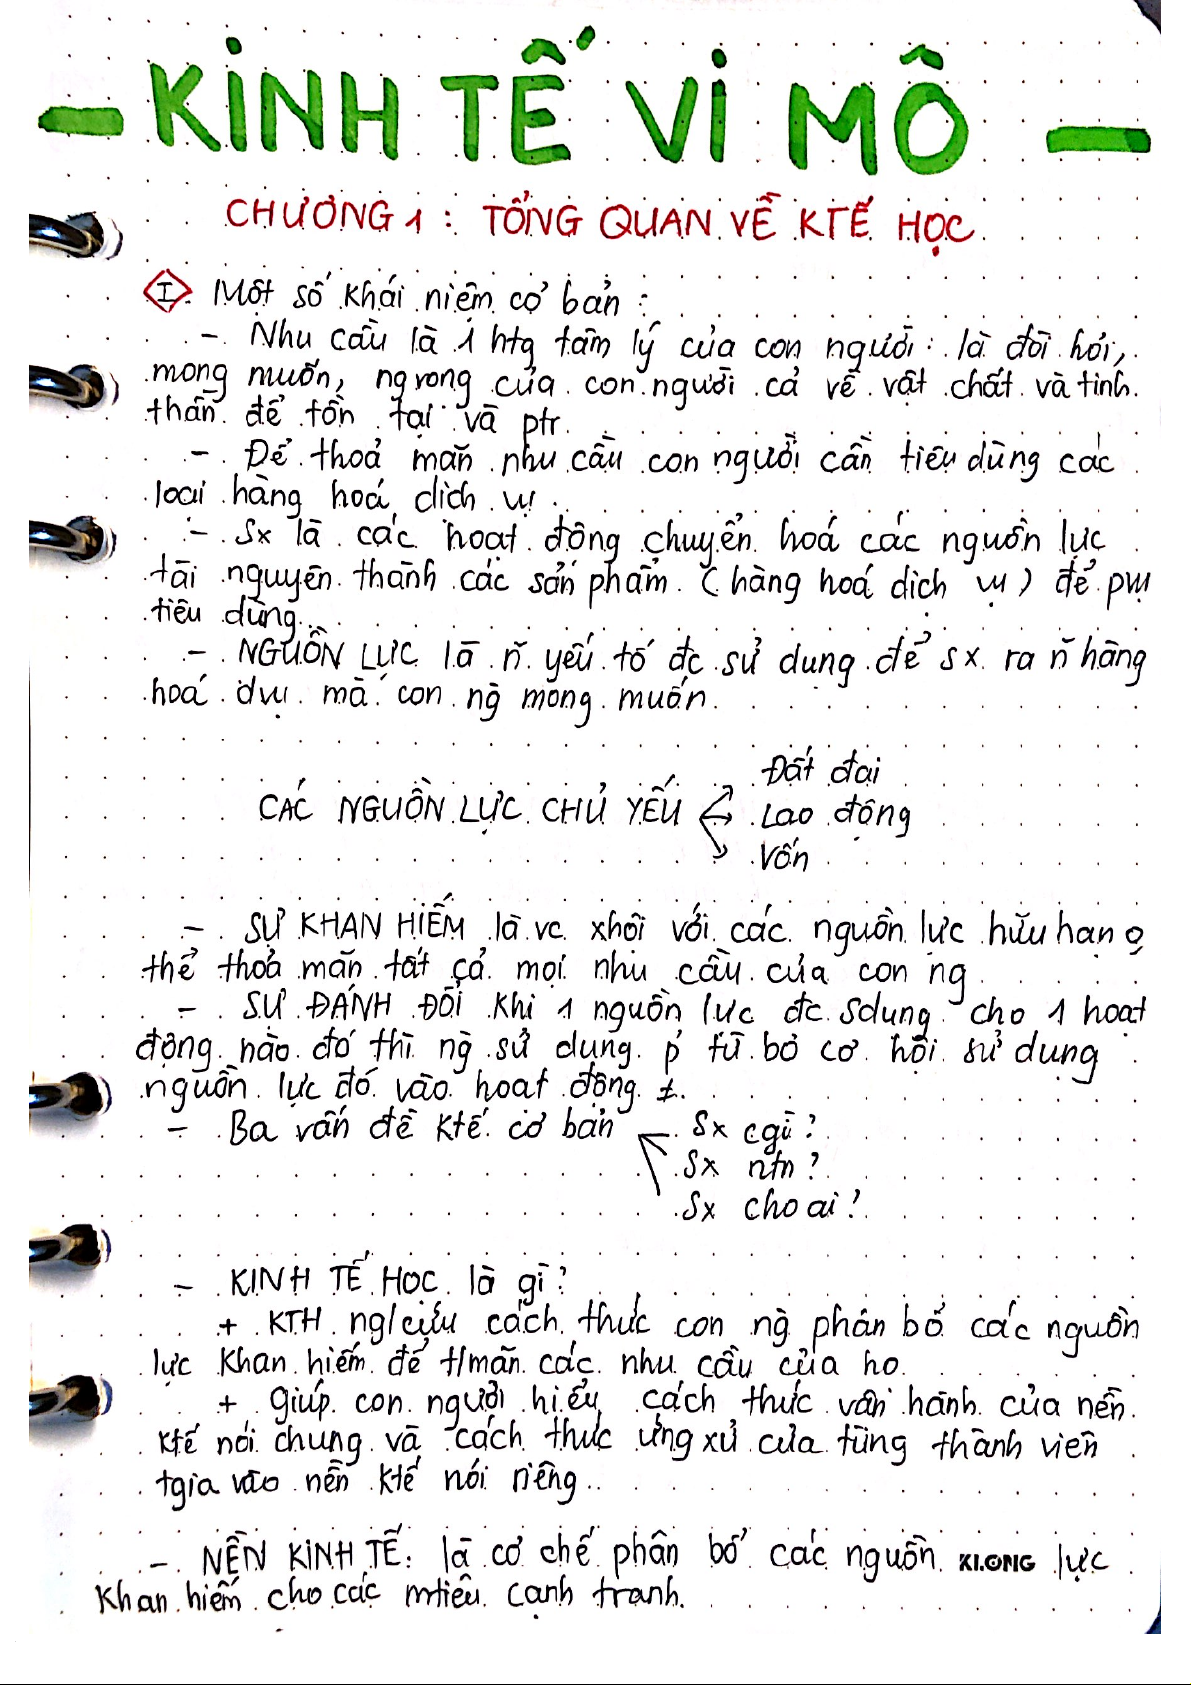 - KINH TẾ VI MÔ -
CHƯƠNG 1 : TỔNG QUAN VỀ KTẾ HỌC
I. Một số khái niệm cơ bản :
- Nhu cầu là 1 htg tâm lý của con người: là đòi hỏi,
mong muốn, ng vọng của con người cả về vật chất và tinh
thần để tồn tại và ptr.
- Để thoả mãn nhu cầu con người cần tiêu dùng các
loại hàng hoá, dịch vụ.
- Sx là các hoạt động chuyển hoá các nguồn lực
tài nguyên thành các sản phẩm (hàng hoá dịch vụ) để pvụ
tiêu dùng.
- NGUỒN LỰC là n~ yếu tố đc sử dụng để sx ra n~ hàng
hoá dvụ mà con ng̀ mong muốn.
CÁC NGUỒN LỰC CHỦ YẾU
Đất đai
Lao động
Vốn
- SỰ KHAN HIẾM là vc xhội với các nguồn lực hữu hạn o
thể thoả mãn tất cả mọi nhu cầu của con ng
- SỰ ĐÁNH ĐỔI khi 1 nguồn lực đc sdụng cho 1 hoạt
động nào đó thì ng̀ sử dụng p' từ bỏ cơ hội sử dụng
nguồn lực đó vào hoạt động ≠.
- Ba vấn đề ktế cơ bản
Sx cgì?
Sx ntn?
Sx cho ai?
- KINH TẾ HỌC là gì?
+ KTH ng/cứu cách thức con ng̀ phân bổ các nguồn
lực khan hiếm để t/mãn các nhu cầu của họ.
+ giúp con người hiểu cách thức vận hành của nền
ktế nói chung và cách thức ứng xử của từng thành viên
tgia vào nền ktế nói riêng.
- NỀN KINH TẾ: là cơ chế phân bổ các nguồn KLONG lực
khan hiếm cho các mtiêu cạnh tranh.